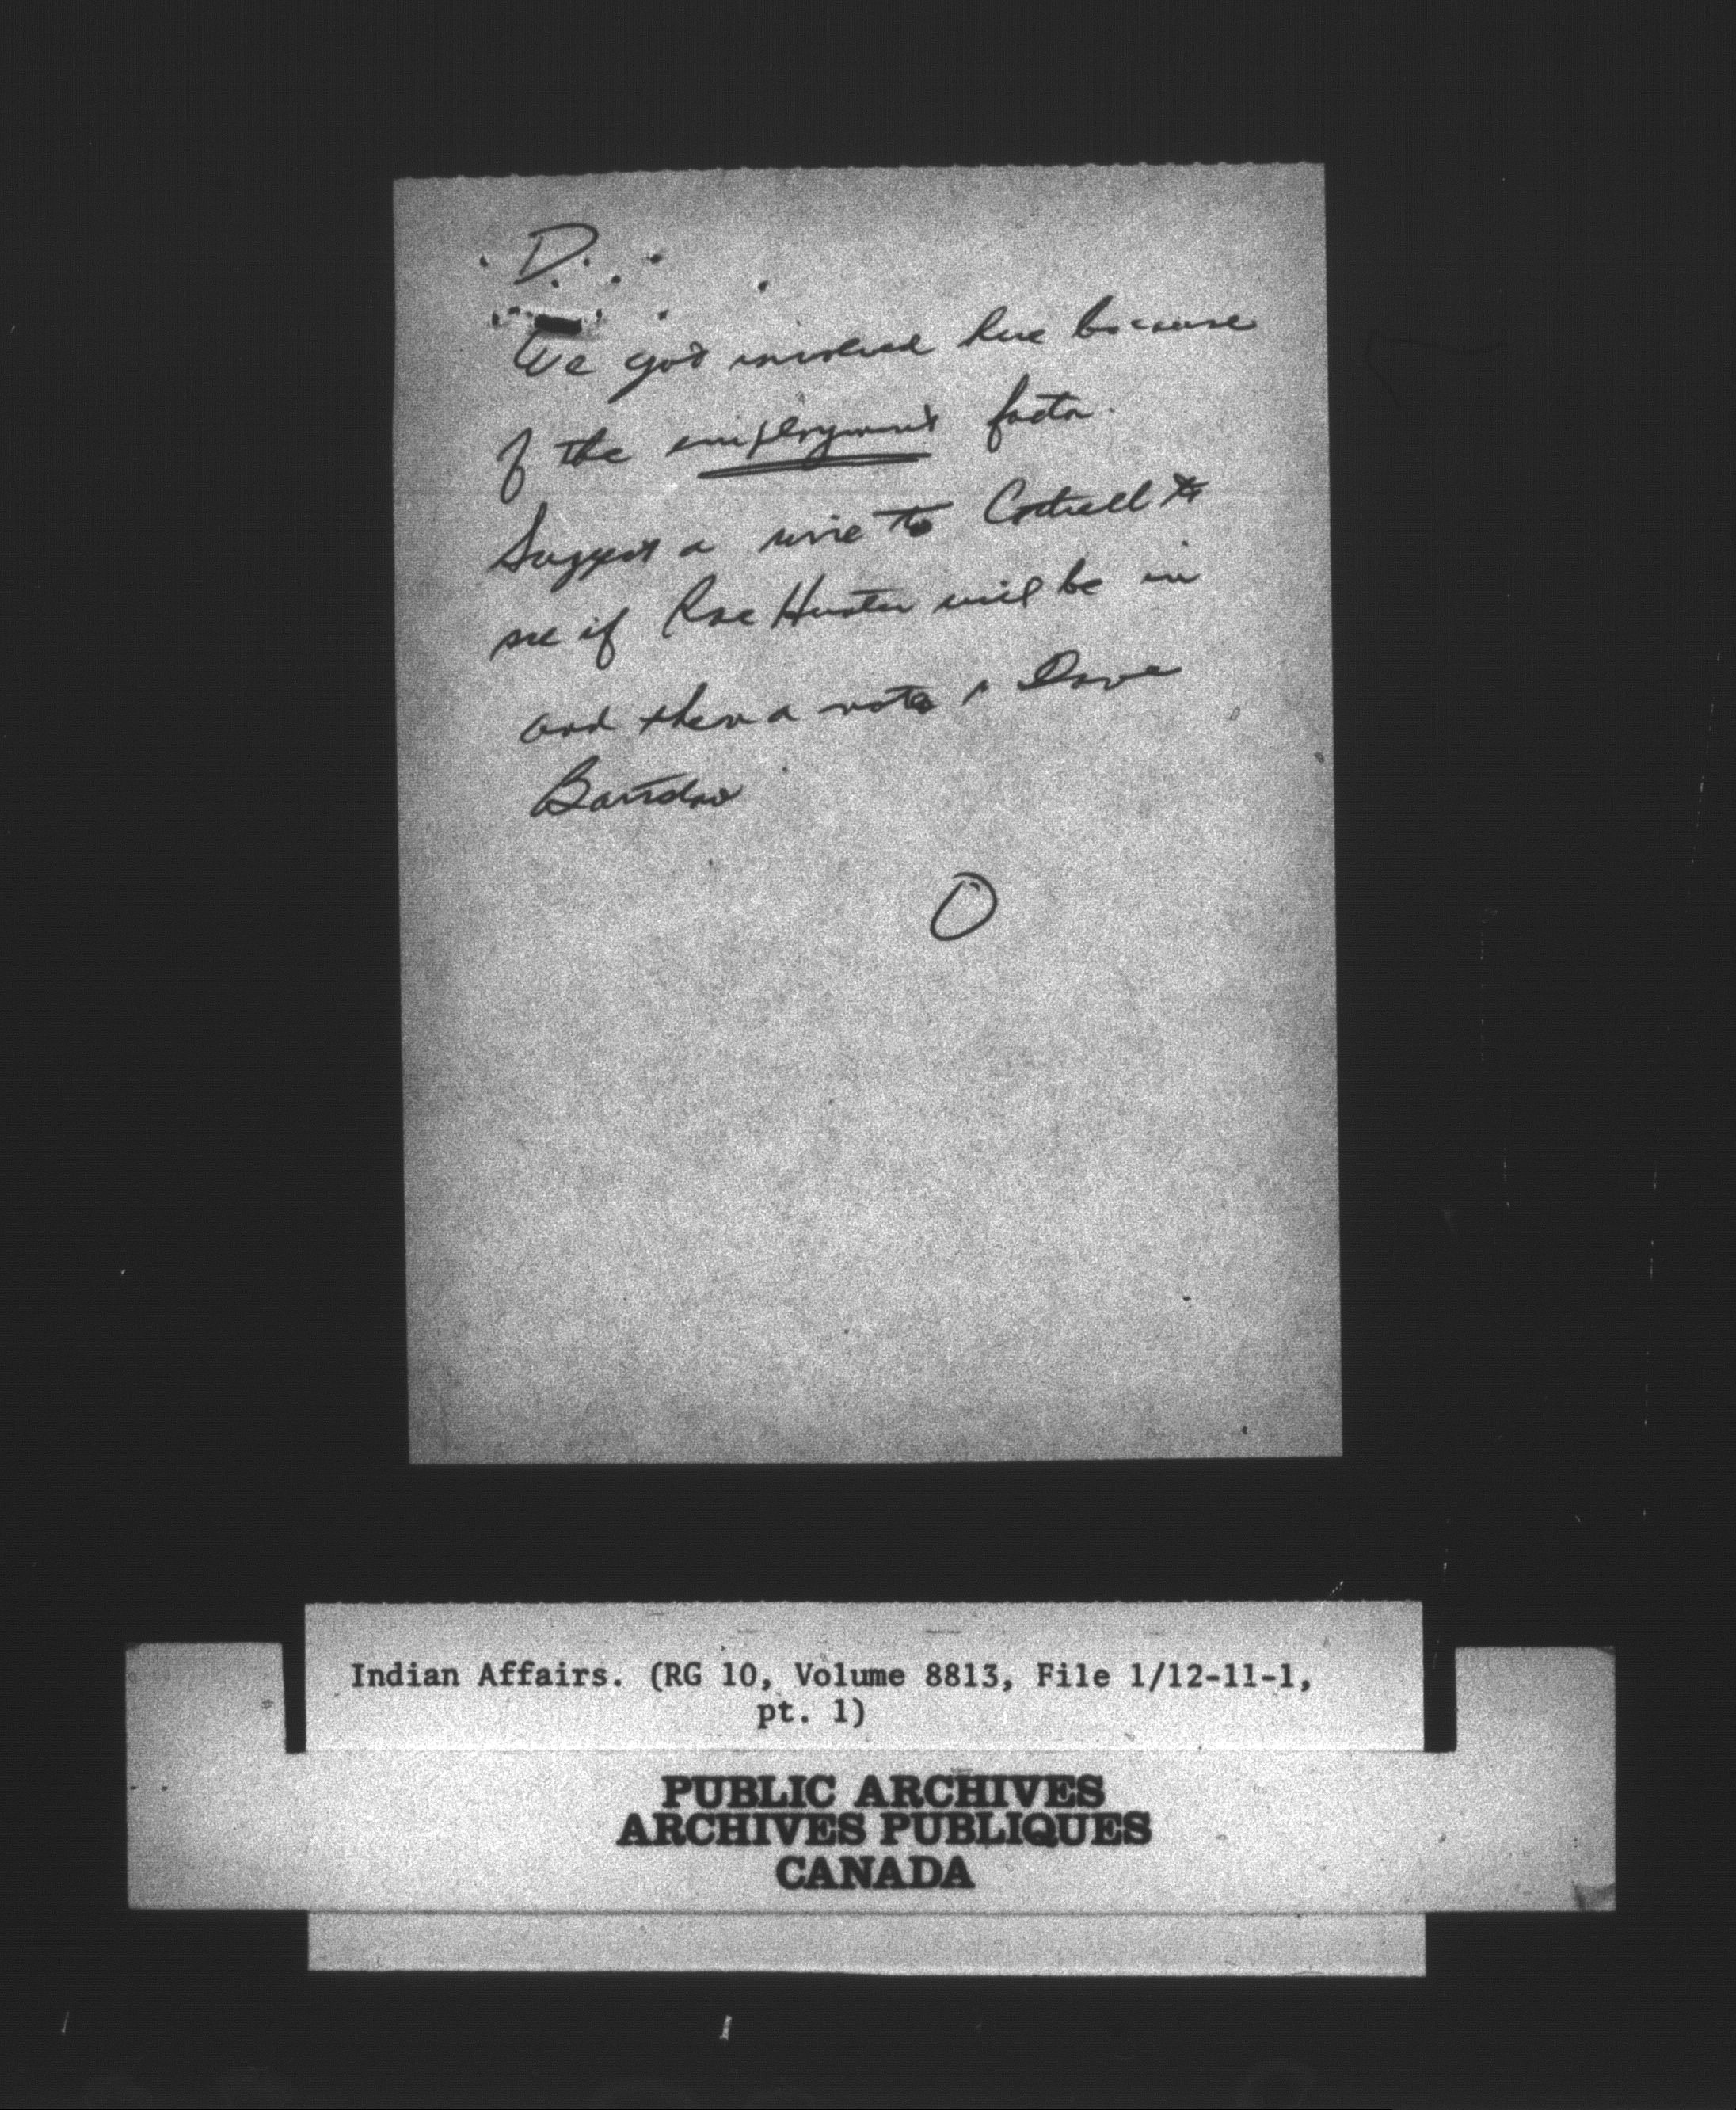 D.
We got involved here because
of the employment factor.
Suggest a wire to Cottrell to
see if Roe Hunter will be in
and then a note to Dave
O
Indian Affairs. (RG 10, Volume 8813, File 1/12-11-1,
pt. 1)
PUBLIC ARCHIVES
ARCHIVES PUBLIQUES
CANADA